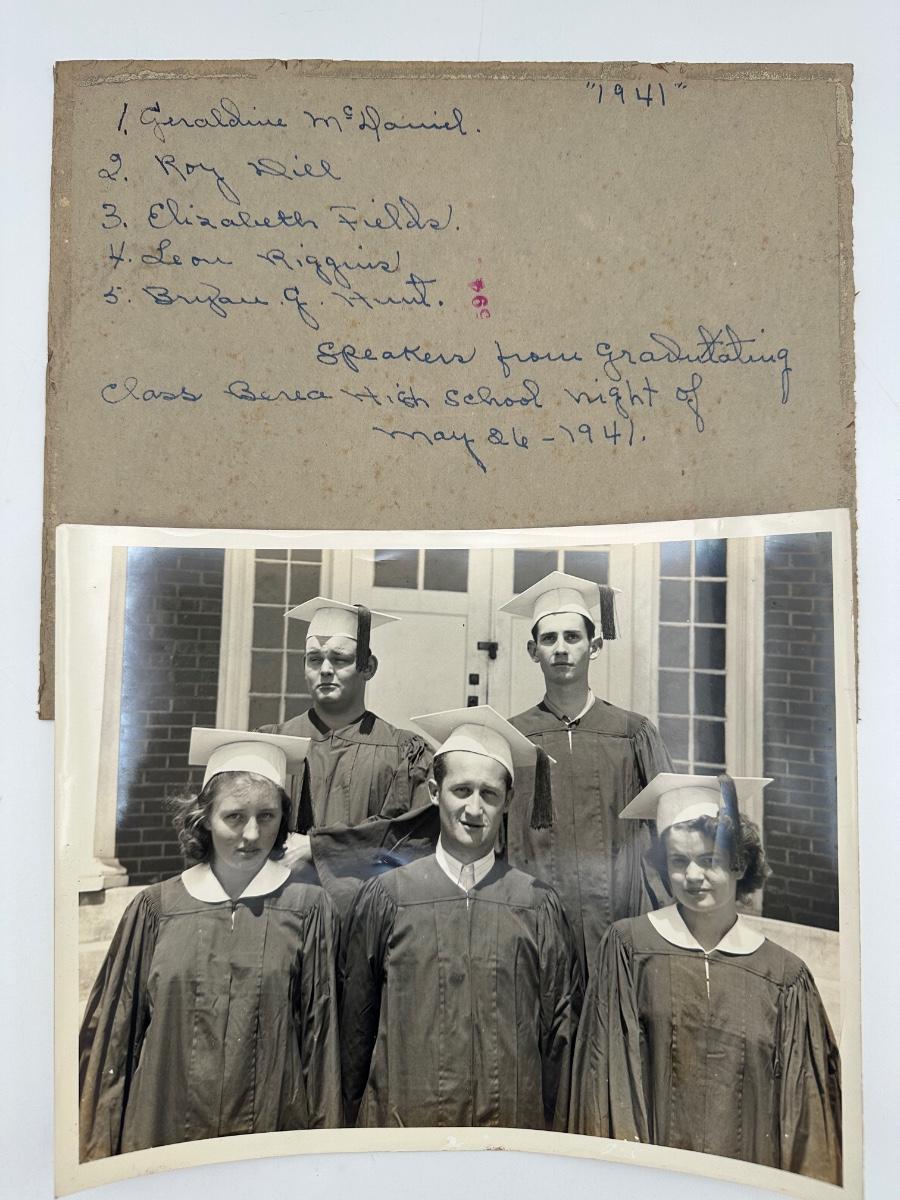 "1941"
1. Geraldine McDaniel.
2. Roy Dill
3. Elizabeth Fields.
4. Leon Riggins
5. Bryan G. Hunt.
69
Speakers from Gradutating
Class Berea High School night of
May 26-1941.